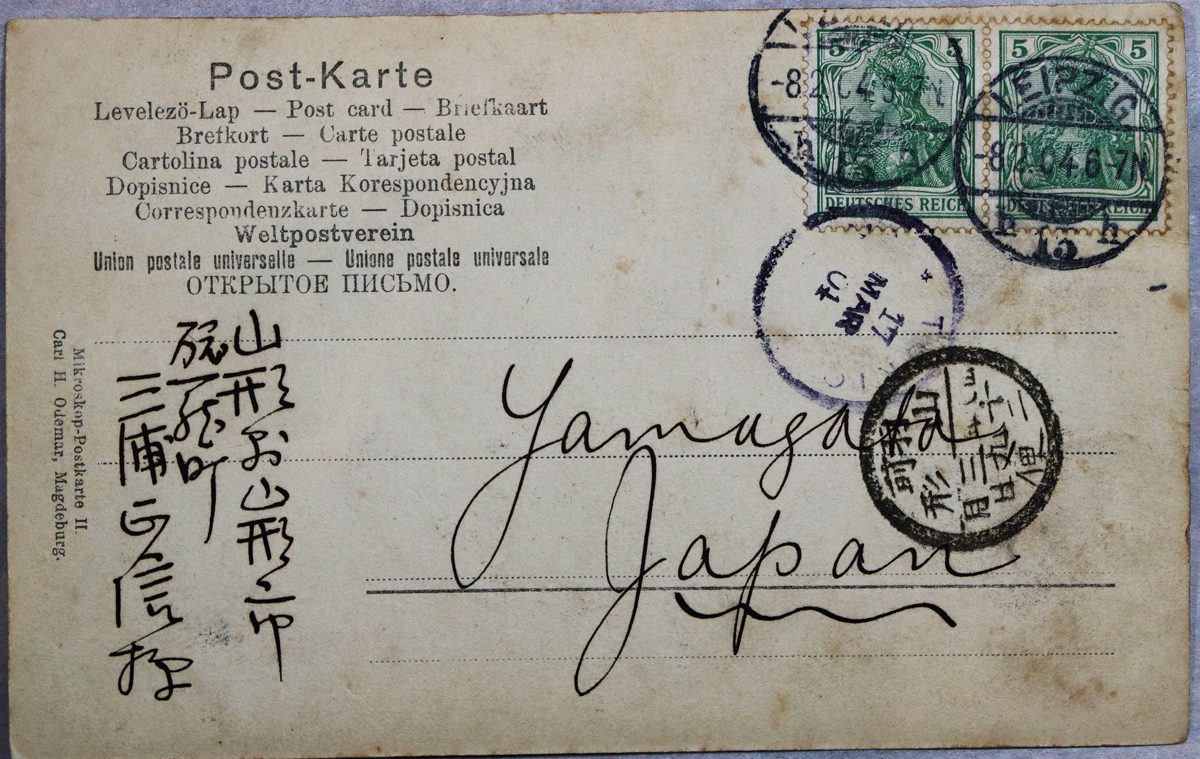 Post-Karte
Levelezö-Lap — Post card — Briefkaart
Brefkort — Carte postale
Cartolina postale — Tarjeta postal
Dopisnice — Karta Korespondencyjna
Correspondenzkarte — Dopisnica
Weltpostverein
Union postale universelle — Unione postale universale
ОТКРЫТОЕ ПИСЬМО.
5 5
DEUTSCHES REICH
5 5
DEUTSCHES REICH
-8.2.04.6-7N
LEIPZIG
-8.2.04.6-7N
h 15 h
17
MAR
04
Yamagata
Japan
山形
三月
山形市
山形
町
三浦正信様
Mikroskop-Postkarte II.
Carl H. Odemar, Magdeburg.